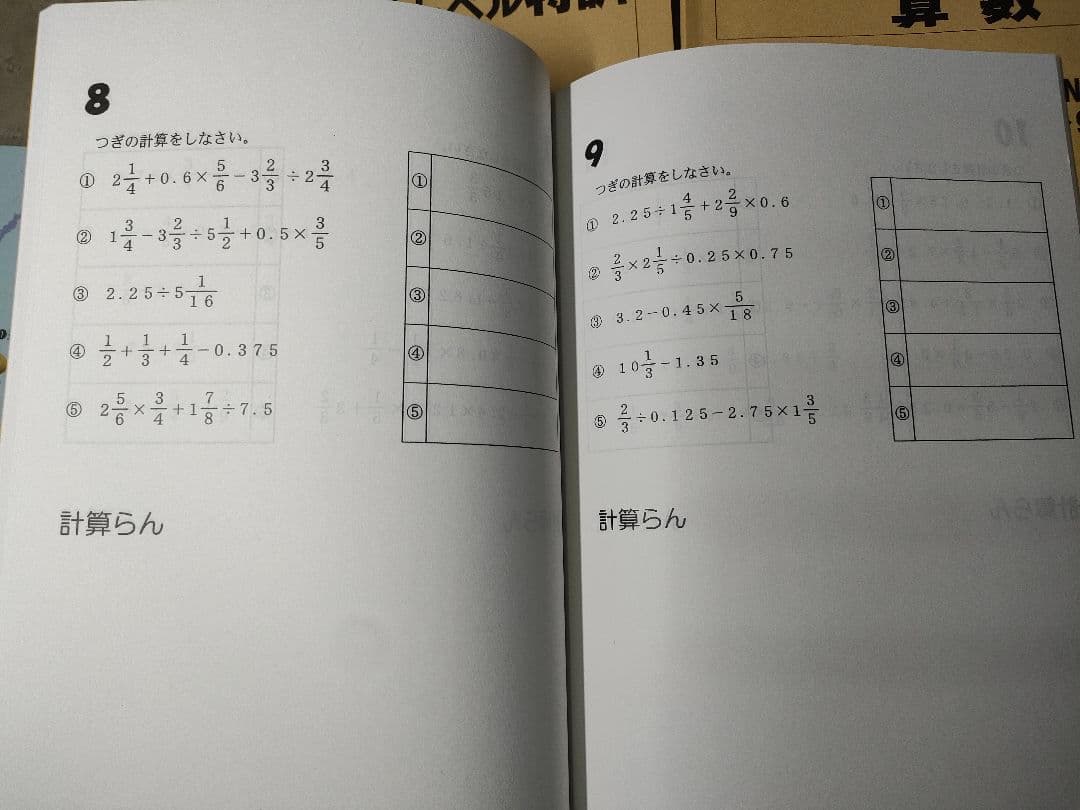 算数
8
つぎの計算をしなさい。
① 2 1/4 + 0.6 × 5/6 − 3 2/3 ÷ 2 3/4
② 1 3/4 − 3 2/3 ÷ 5 1/2 + 0.5 × 3/5
③ 2.25 ÷ 5 1/16
④ 1/2 + 1/3 + 1/4 − 0.375
⑤ 2 5/6 × 3/4 + 1 7/8 ÷ 7.5
①
②
③
④
⑤
計算らん
9
つぎの計算をしなさい。
① 2.25 ÷ 1 4/5 + 2 2/9 × 0.6
② 2/3 × 2 1/5 ÷ 0.25 × 0.75
③ 3.2 − 0.45 × 5/18
④ 10 1/3 − 1.35
⑤ 2/3 ÷ 0.125 − 2.75 × 1 3/5
①
②
③
④
⑤
計算らん